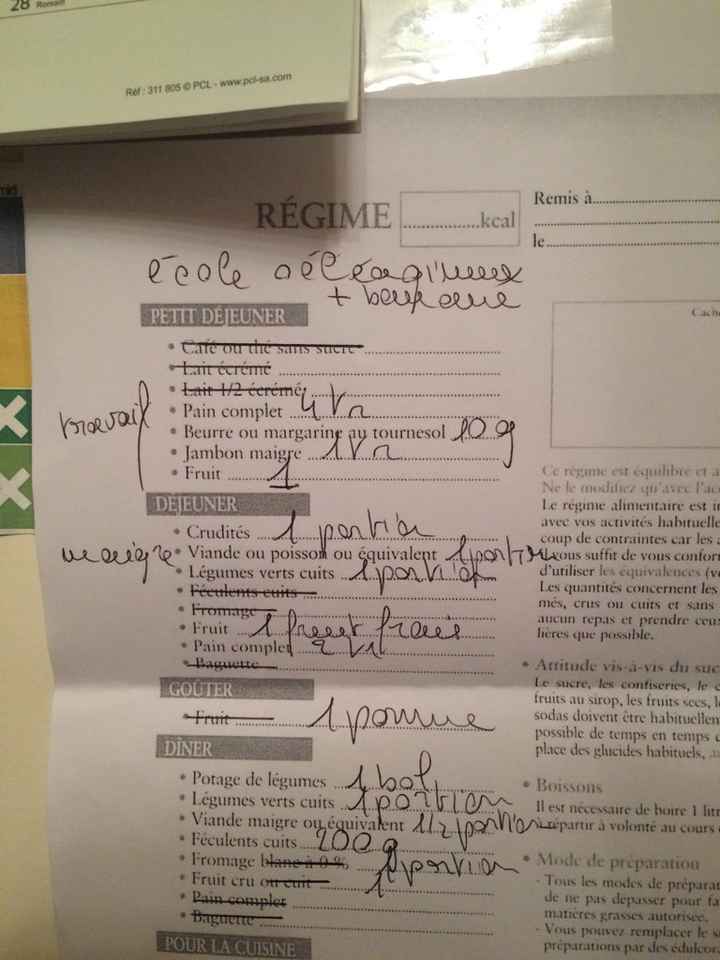 28 Romain
Réf : 311 805 © PCL - www.pcl-sa.com
RÉGIME ................kcal
Remis à
le
école oléagineux
+ banane
PETIT DÉJEUNER
• Café ou thé sans sucre
• Lait écrémé
• Lait 1/2 écrémé
• Pain complet 4 Tr
travail
• Beurre ou margarine au tournesol 10 g
• Jambon maigre 1 Tr
• Fruit 1
DÉJEUNER
• Crudités 1 portion
maigre • Viande ou poisson ou équivalent 1 portion
• Légumes verts cuits 1 portion
• Féculents cuits
• Fromage
• Fruit 1 fruit frais
• Pain complet 2 Tr
• Baguette
GOÛTER
• Fruit 1 pomme
DÎNER
• Potage de légumes 1 bol
• Légumes verts cuits 1 portion
• Viande maigre ou équivalent 1/2 portion
• Féculents cuits 200 g
• Fromage blanc à 0 % 1 portion
• Fruit cru ou cuit 1
• Pain complet
• Baguette
POUR LA CUISINE
Cache
Ce régime est équilibré et a
Ne le modifiez qu'avec l'ac
Le régime alimentaire est in
avec vos activités habituelle
coup de contraintes car les a
vous suffit de vous confor
d'utiliser les équivalences (v
Les quantités concernent les
més, crus ou cuits et sans
aucun repas et prendre ceux
lières que possible.
• Attitude vis-à-vis du suc
Le sucre, les confiseries, le c
fruits au sirop, les fruits secs, l
sodas doivent être habituellem
possible de temps en temps d
place des glucides habituels,
• Boissons
Il est nécessaire de boire 1 litr
répartir à volonté au cours
• Mode de préparation
- Tous les modes de préparat
de ne pas dépasser pour fa
matières grasses autorisée.
- Vous pouvez remplacer le s
préparations par des édulcor